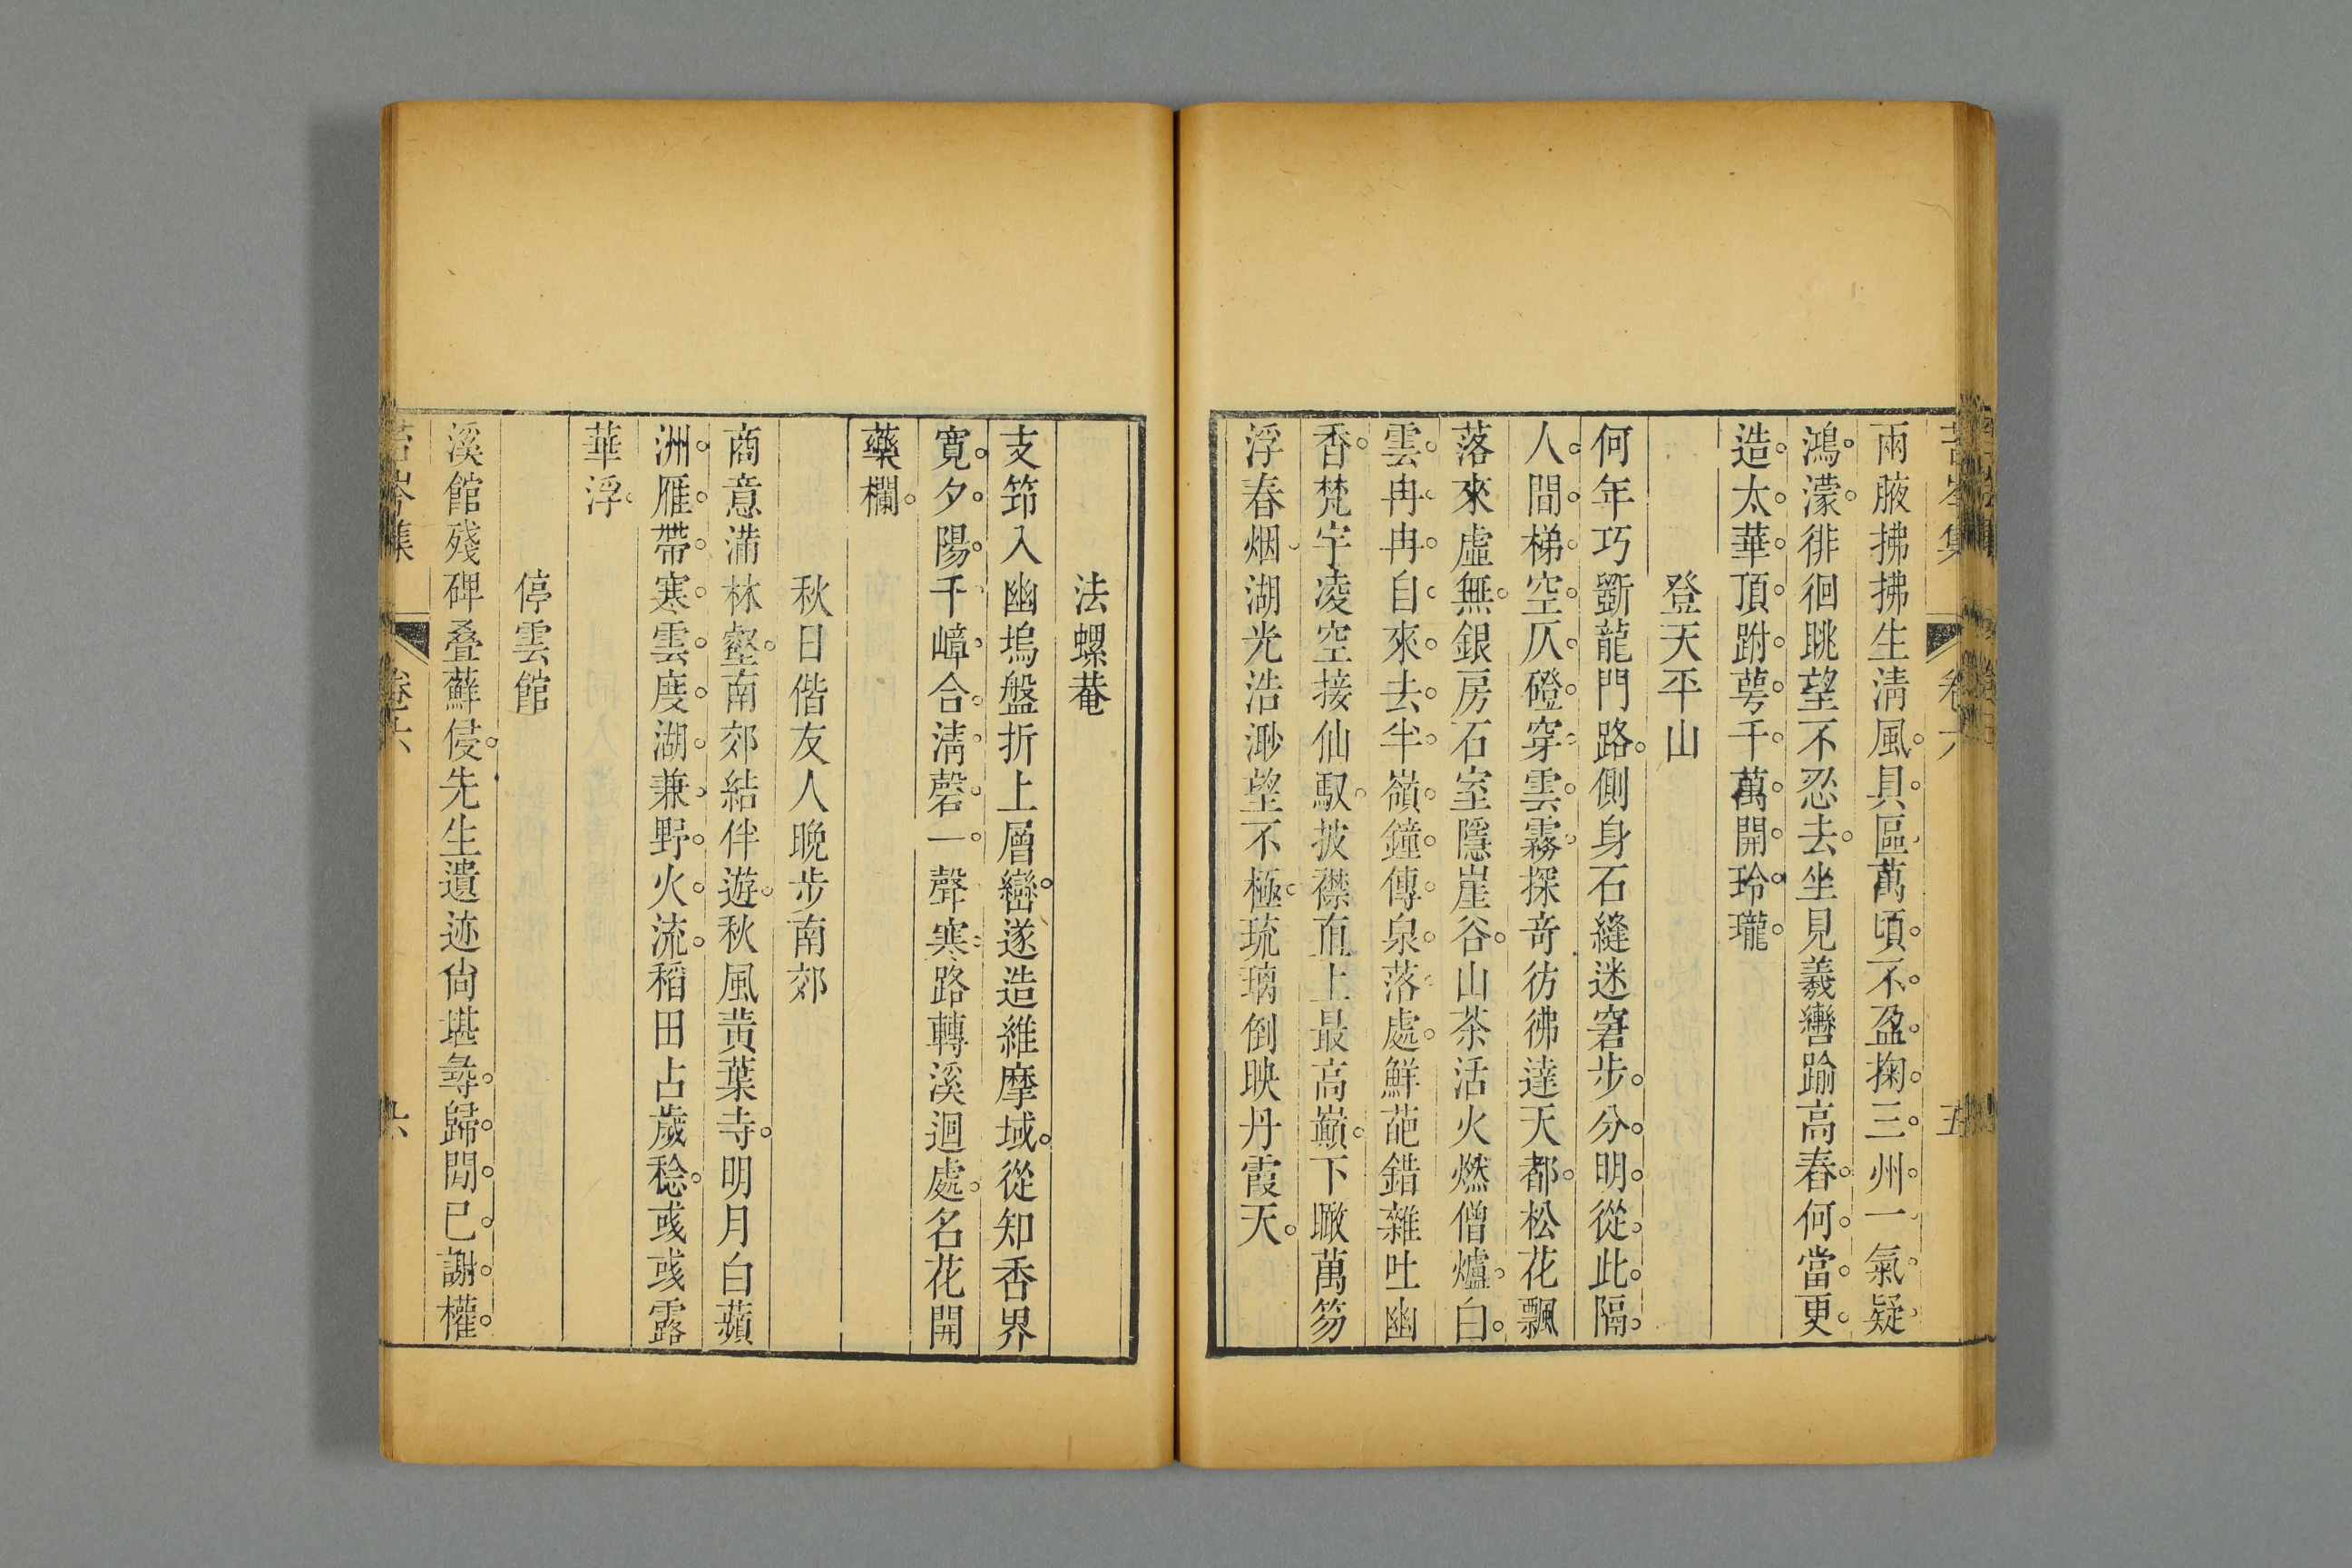 苔岑集 卷六 五
兩腋拂拂生清風具區萬頃不盈掬三州一氣疑
鴻濛徘徊眺望不忍去坐見羲轡踰高舂何當更
造太華頂跗萼千萬開玲瓏
登天平山
何年巧斵龍門路側身石縫迷窘步分明從此隔
人間梯空仄磴穿雲霧探奇彷彿達天都松花飄
落來虛無銀房石室隱崖谷山茶活火燃僧爐白
雲冉冉自來去半嶺鐘傳泉落處鮮葩錯雜吐幽
香梵宇凌空接仙馭披襟直上最高巔下瞰萬笏
浮春烟湖光浩渺望不極琉璃倒映丹霞天
法螺菴
支笻入幽塢盤折上層巒遂造維摩域從知香界
寬夕陽千嶂合清磬一聲寒路轉溪迴處名花開
藥欄
秋日偕友人晚步南郊
商意滿林壑南郊結伴遊秋風黃葉寺明月白蘋
洲雁帶寒雲度湖兼野火流稻田占歲稔彧彧露
華浮
停雲館
溪館殘碑叠蘚侵先生遺迹尙堪尋歸閒已謝權
苔岑集 卷六 六